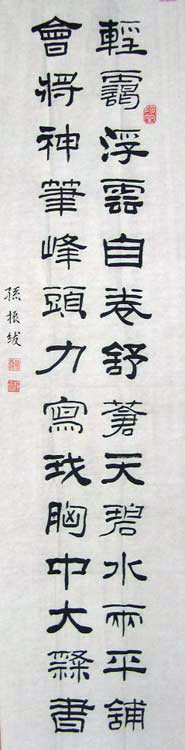 輕靄浮雲自卷舒蒼天碧水兩平舖
會將神筆峰頭力寫我胸中大隸書
孫振紱